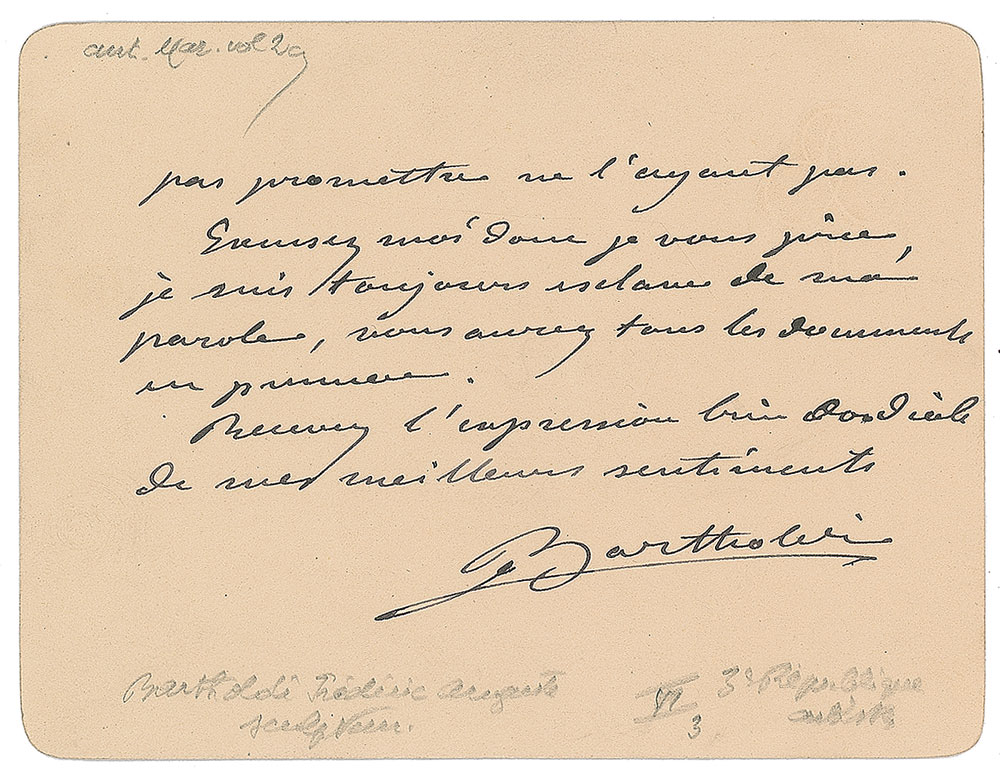 aut. Mar. vol 29
pas promettre ne l'ayant pas.
Excusez moi donc je vous prie,
je suis toujours esclave de ma
parole, vous aurez tous les documents
en
Recevez l'expression bien cordiale
de mes meilleurs sentiments
Bartholdi
Bartholdi Frédéric Auguste
sculpteur.
VI
3
3e République
artiste